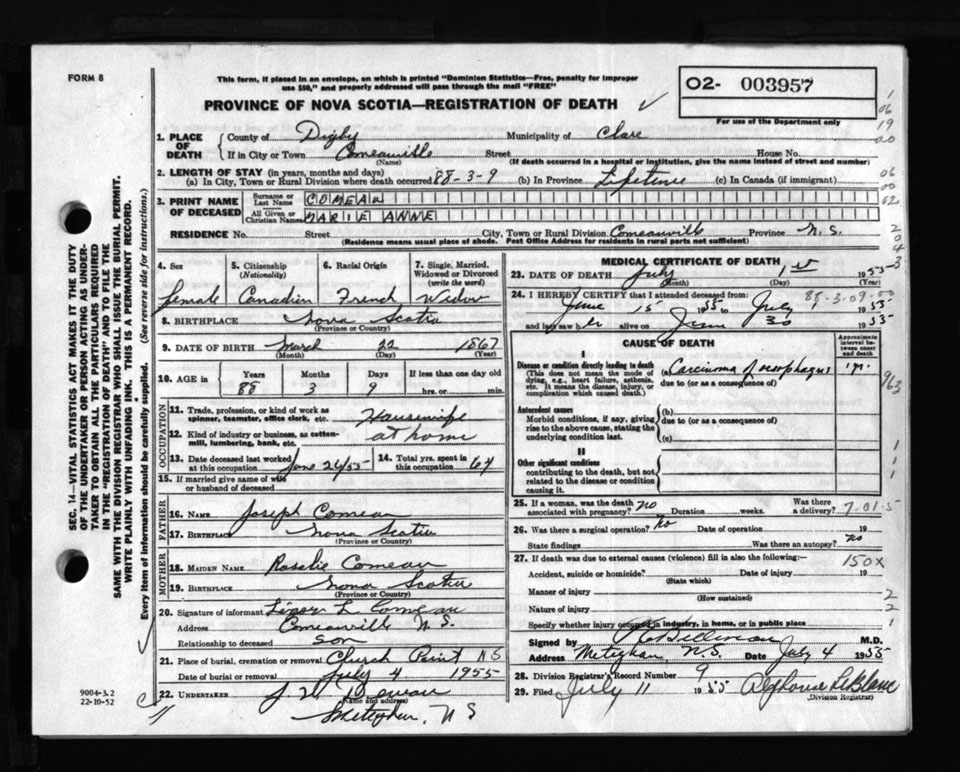 FORM 8
This form, if placed in an envelope, on which is printed "Dominion Statistics—Free, penalty for improper
use $50," and properly addressed will pass through the mail "FREE"
PROVINCE OF NOVA SCOTIA—REGISTRATION OF DEATH
O2- 003957
For use of the Department only
1. PLACE OF DEATH
County of Digby Municipality of Clare
If in City or Town Comeauville Street House No.
(Name) (If death occurred in a hospital or institution, give the name instead of street and number)
2. LENGTH OF STAY (in years, months and days)
(a) In City, Town or Rural Division where death occurred 88-3-9 (b) In Province Lifetime (c) In Canada (if immigrant)
3. PRINT NAME OF DECEASED
Surname or Last Name COMEAU
All Given or Christian Names MARIE ANNE
RESIDENCE No. Street City, Town or Rural Division Comeauville Province N.S.
(Residence means usual place of abode. Post Office Address for residents in rural parts not sufficient)
4. Sex
female
5. Citizenship (Nationality)
Canadian
6. Racial Origin
French
7. Single, Married, Widowed or Divorced (write the word)
Widow
8. BIRTHPLACE Nova Scotia
(Province or Country)
9. DATE OF BIRTH March 22 1867
(Month) (Day) (Year)
10. AGE in Years Months Days If less than one day old
88 3 9 hrs. or min.
OCCUPATION
11. Trade, profession, or kind of work as spinner, teamster, office clerk, etc. Housewife
12. Kind of industry or business, as cotton-mill, lumbering, bank, etc. at home
13. Date deceased last worked at this occupation June 26/55
14. Total yrs. spent in this occupation 64
15. If married give name of wife or husband of deceased
FATHER
16. NAME Joseph Comeau
17. BIRTHPLACE Nova Scotia
(Province or Country)
MOTHER
18. MAIDEN NAME Rosalie Comeau
19. BIRTHPLACE Nova Scotia
(Province or Country)
20. Signature of informant L. Comeau
Address Comeauville N.S.
Relationship to deceased son
21. Place of burial, cremation or removal Church Point NS
Date of burial or removal July 4 1955
22. UNDERTAKER
(Name and address)
Meteghan, N S
MEDICAL CERTIFICATE OF DEATH
23. DATE OF DEATH July 1st 1955
(Month) (Day)
24. I HEREBY CERTIFY that I attended deceased from: 88-3-09-00
June 15 1955 to July 1 1955
and last saw her alive on June 30 1955
CAUSE OF DEATH
Approximate interval between onset and death
I
Disease or condition directly leading to death
(This does not mean the mode of dying, e.g., heart failure, asthenia, etc. It means the disease, injury, or complication which caused death.)
(a) Carcinoma of oesophagus 1 yr.
due to (or as a consequence of)
Antecedent causes
Morbid conditions, if any, giving rise to the above cause, stating the underlying condition last.
(b)
due to (or as a consequence of)
(c)
II
Other significant conditions
contributing to the death, but not related to the disease or condition causing it.
25. If a woman, was the death associated with pregnancy? no Duration weeks. Was there a delivery? 7-01-5
26. Was there a surgical operation? no Date of operation 19
State findings Was there an autopsy? no
27. If death was due to external causes (violence) fill in also the following:— 150X
Accident, suicide or homicide? Date of injury 19
(State which)
Manner of injury
(How sustained)
Nature of injury
Specify whether injury occurred in industry, in home, or in public place
Signed by M.D.
Address Meteghan, N.S. Date July 4 1955
28. Division Registrar's Record Number 9
29. Filed July 11 1955 Alphonse LeBlanc
(Division Registrar)
SEC. 14—VITAL STATISTICS ACT MAKES IT THE DUTY
OF THE UNDERTAKER OR PERSON ACTING AS UNDER-
TAKER TO OBTAIN ALL THE PARTICULARS REQUIRED
IN THE "REGISTRATION OF DEATH" AND TO FILE THE
SAME WITH THE DIVISION REGISTRAR WHO SHALL ISSUE THE BURIAL PERMIT.
WRITE PLAINLY WITH UNFADING INK. THIS IS A PERMANENT RECORD.
Every item of information should be carefully supplied. (See reverse side for instructions.)
9004-3.2
22-10-52